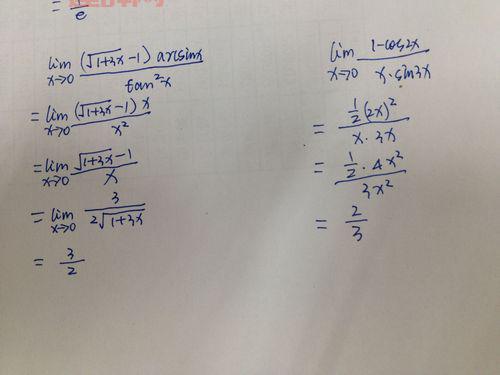 = 1/e
lim x→0 (√(1+3x) -1) arcsinx / tan²x
= lim x→0 (√(1+3x) -1) x / x²
= lim x→0 (√(1+3x) -1) / x
= lim x→0 3 / 2√(1+3x)
= 3/2
lim x→0 1-cos2x / x·sin3x
= ½(2x)² / x·3x
= ½·4x² / 3x²
= 2/3